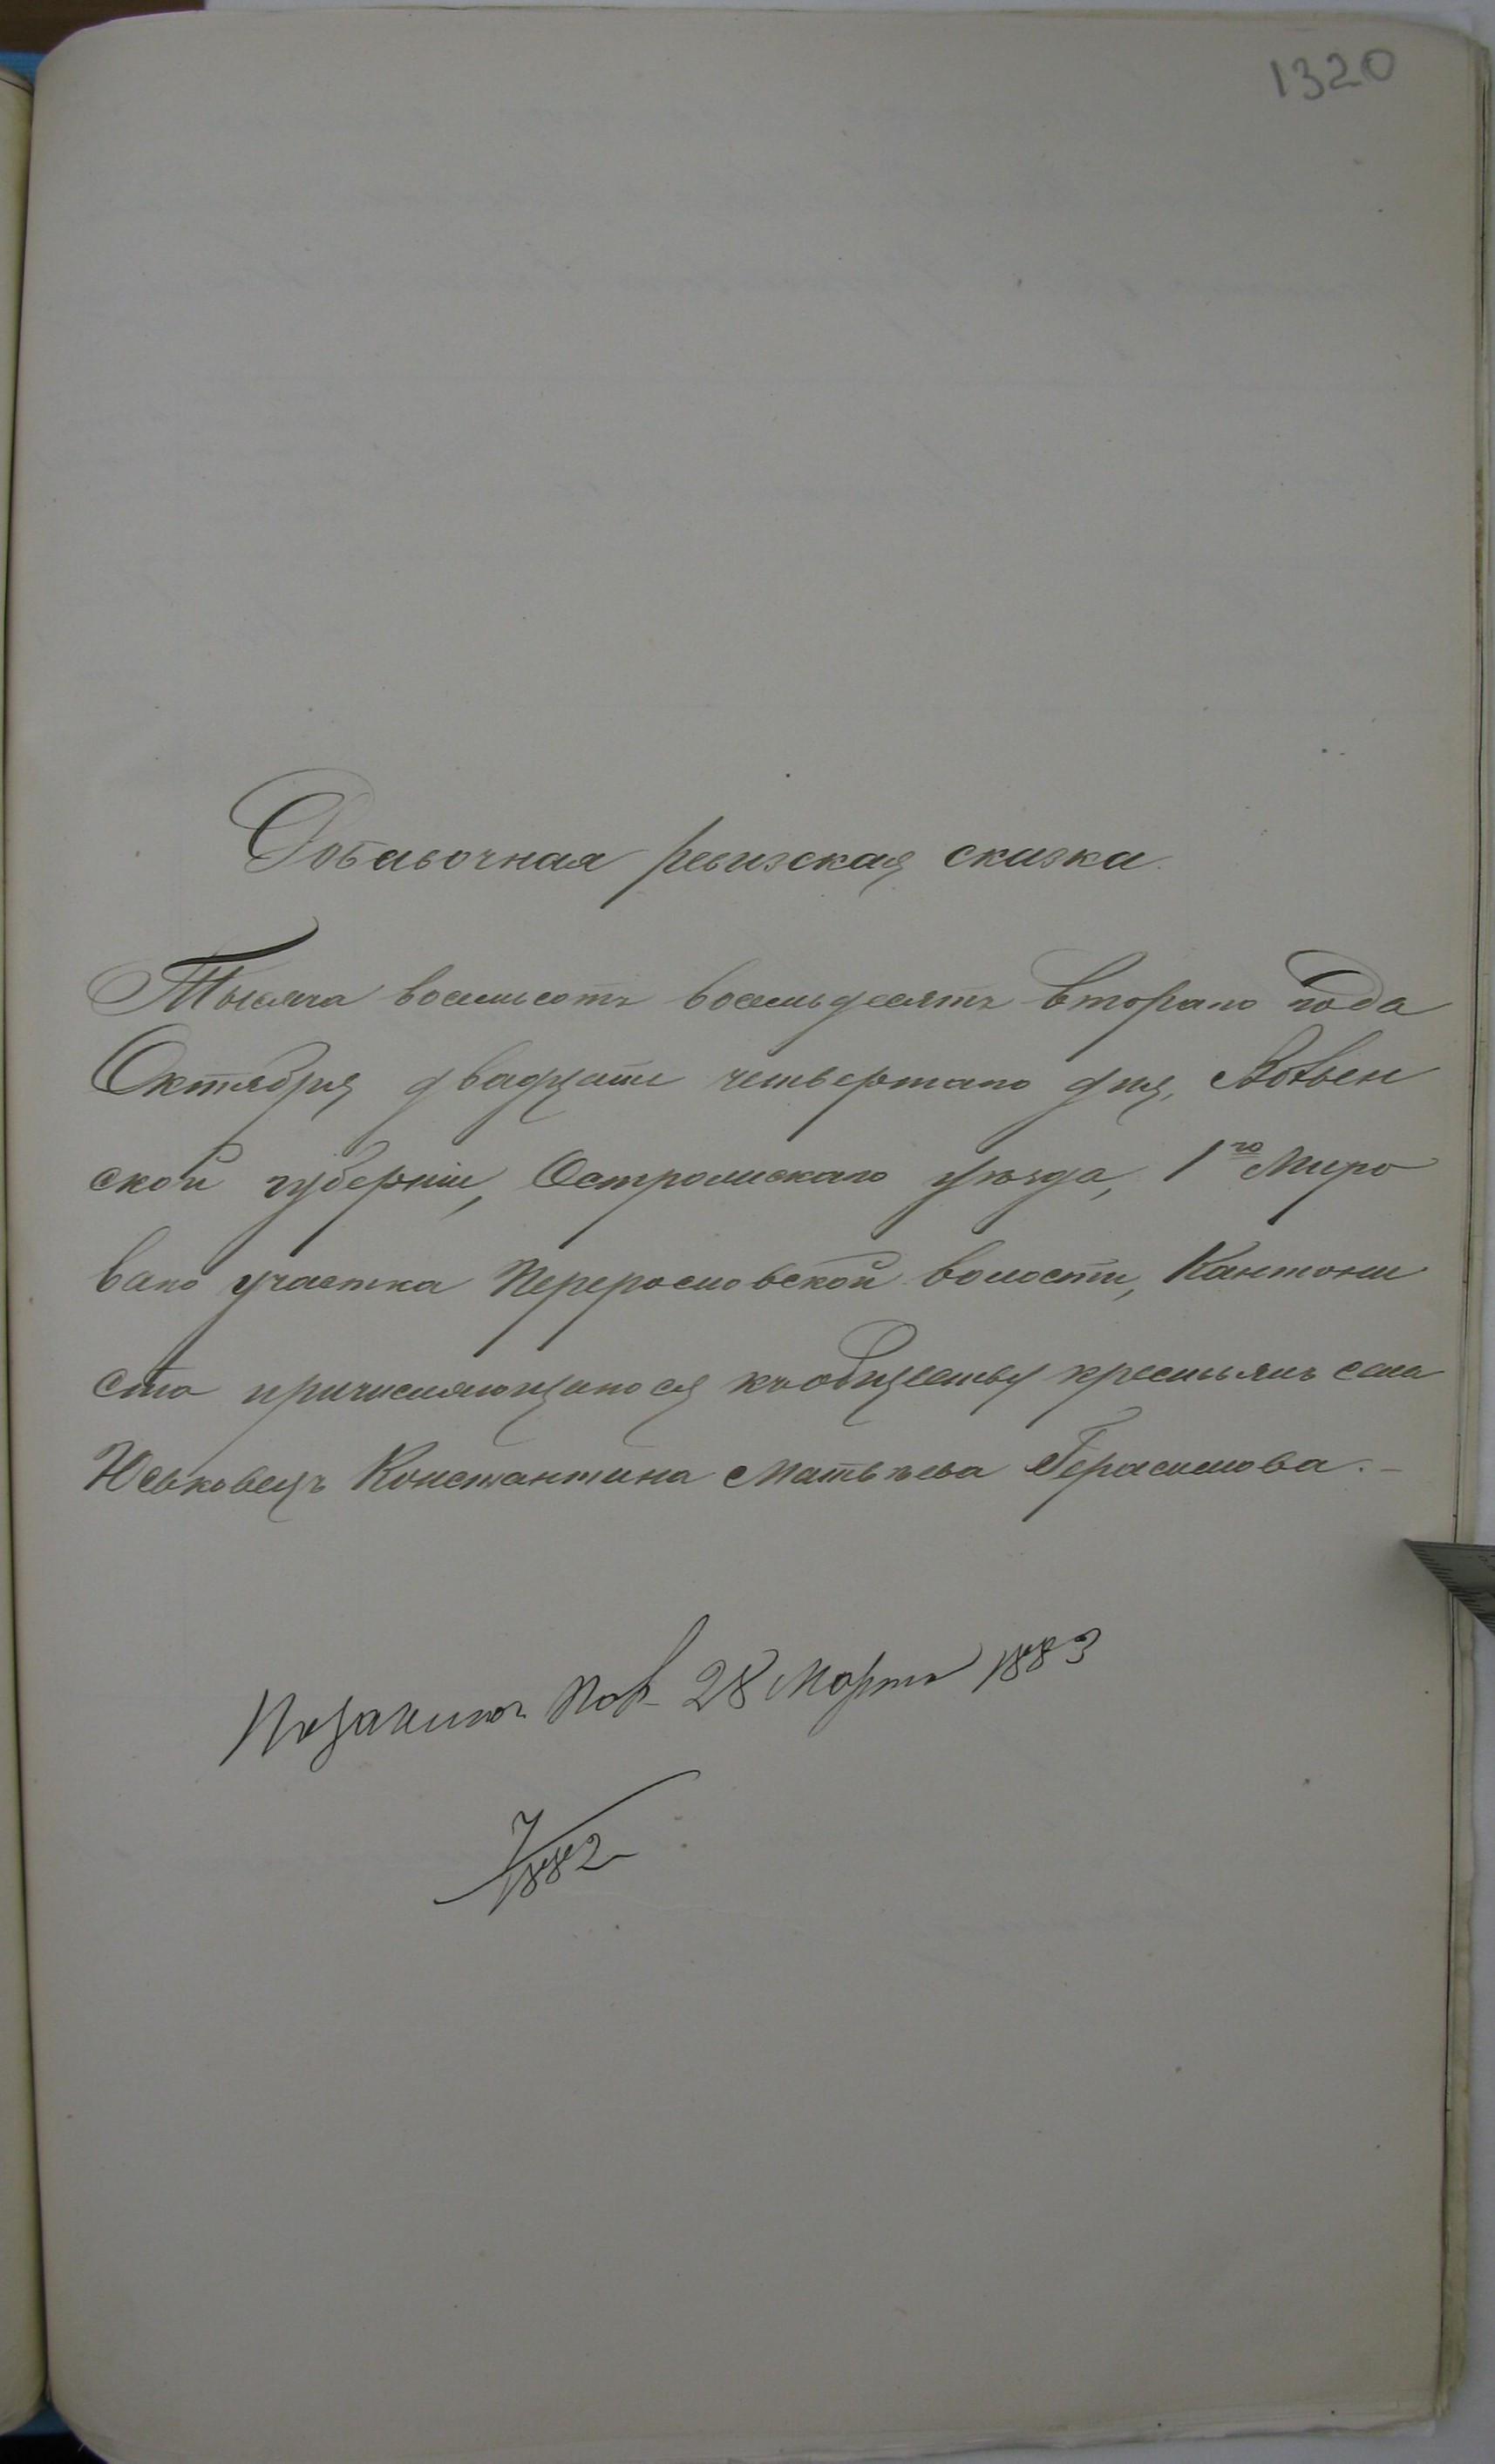 1320
Добавочная ревизская сказка.
Тысяча восемьсотъ восемьдесятъ втораго года
Октября двадцати четвертаго дня, Волын
ской губерніи, Острожскаго уѣзда, 1го Миро
ваго участка Перерословской волости, Кантони
ста причисляющагося къ обществу крестьянъ села
Юськовецъ Константина Матвѣева Герасимова.-
28 Марта 1883
7/1882